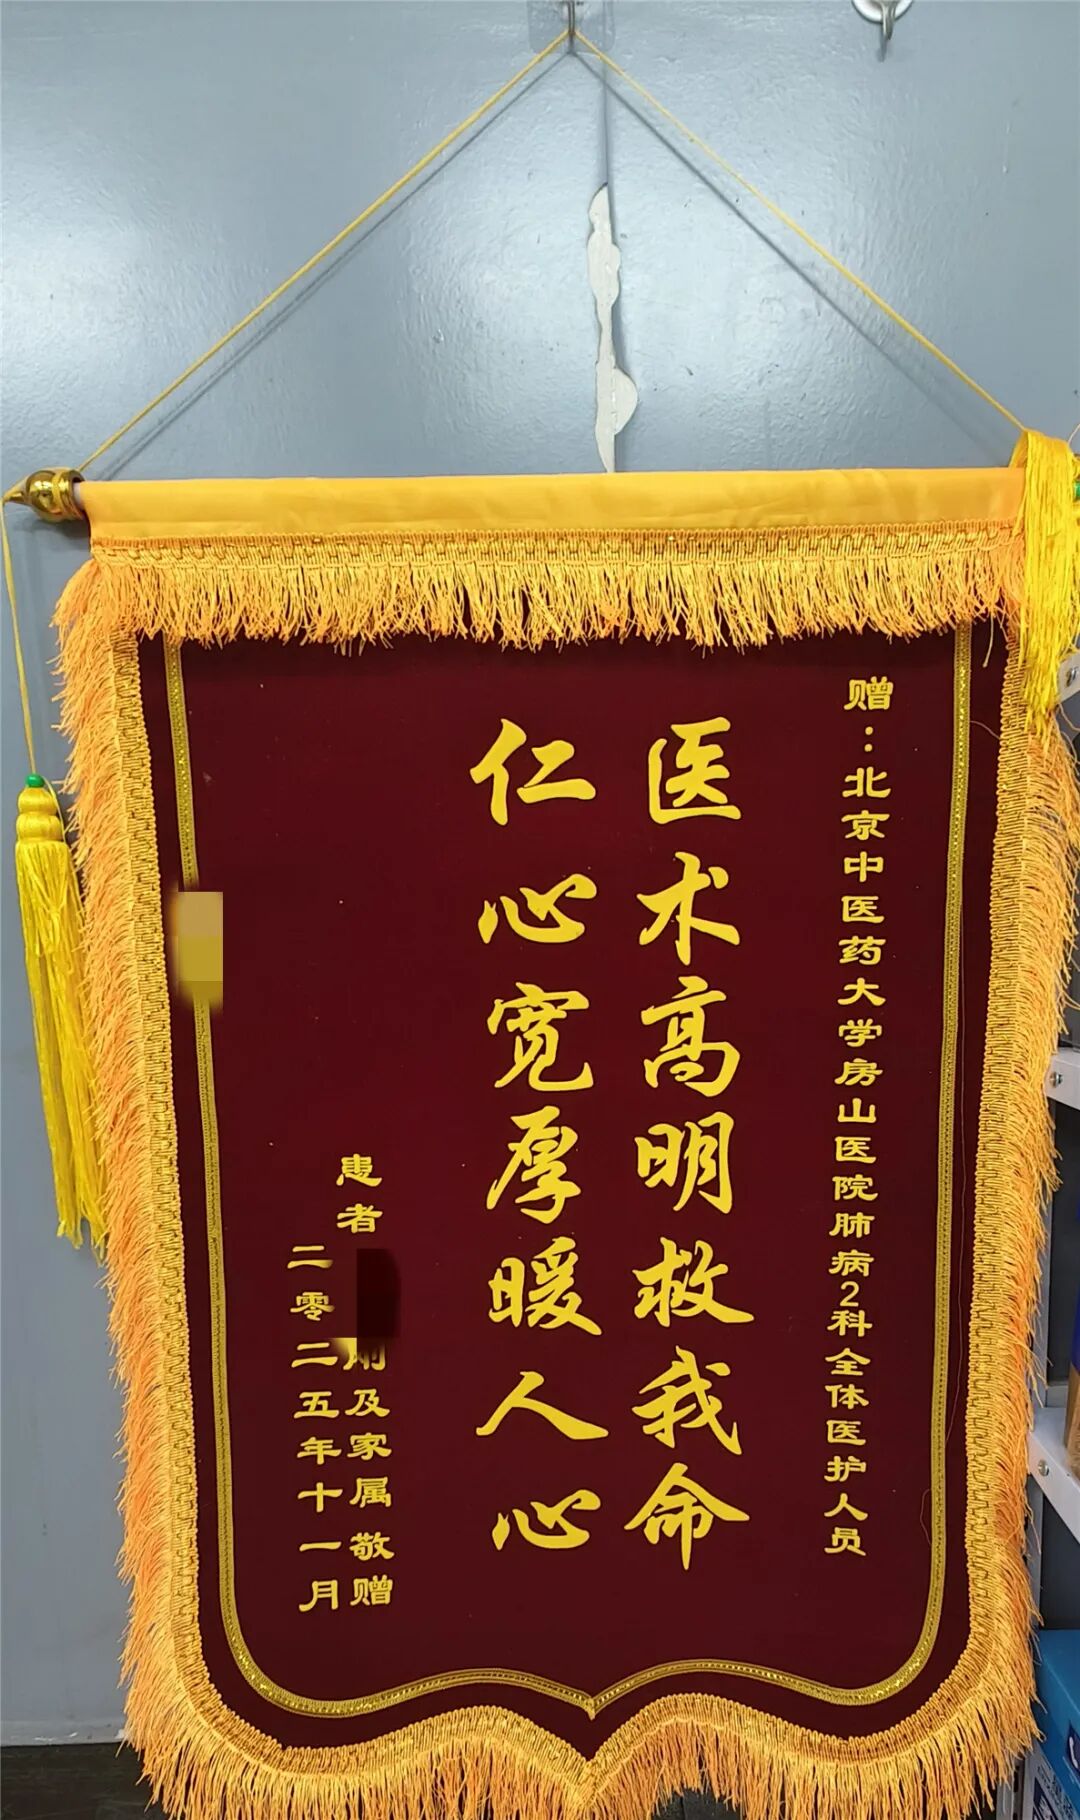 赠：北京中医药大学房山医院肺病2科全体医护人员
医术高明救我命
仁心宽厚暖人心
患者
及家属敬赠
二零二五年十一月